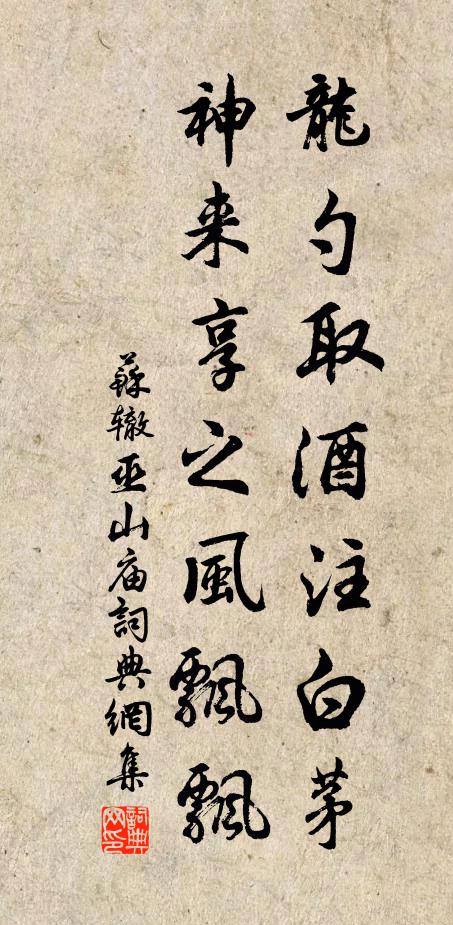 龍勺取酒注白茅
神来享之風飄飄
蘇辙巫山庙詞典網集
詞典网印